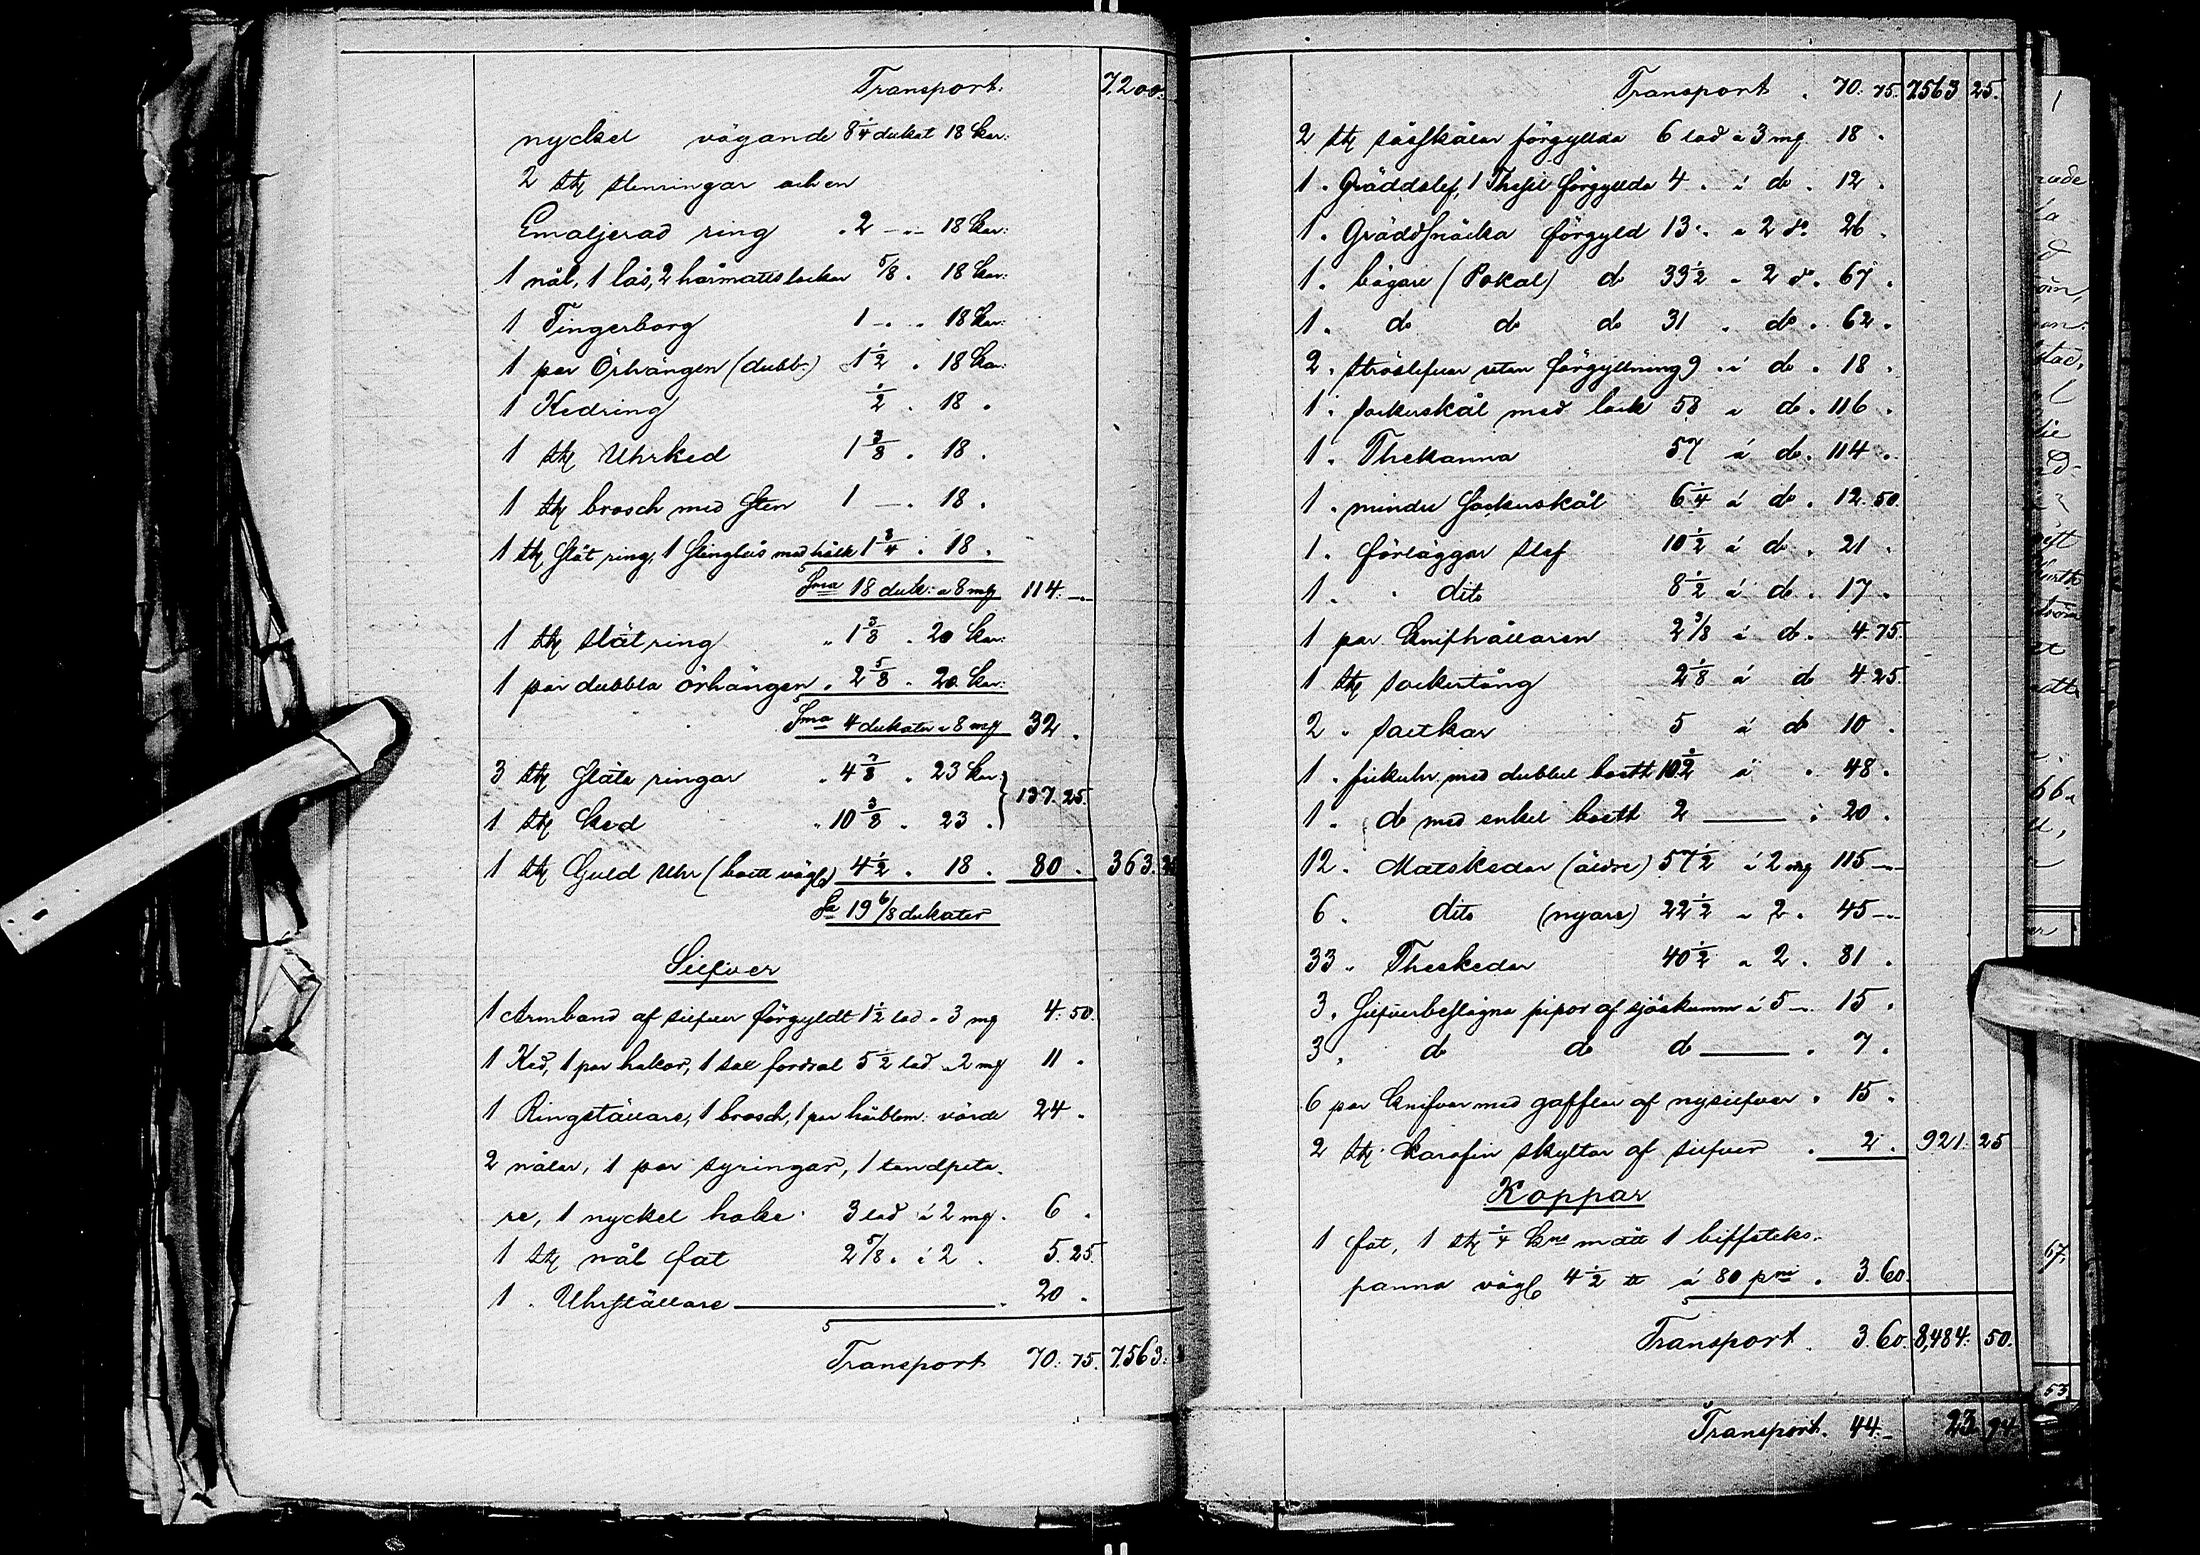 Transport. 7,200.
nyckel vägande 8 1/4 dukat 18 Kar:
2 stk stenringar och en
Emaljerad ring . 2 - " - 18 Kar:
1 nål, 1 lås, 2 hårnåtslockar 5/8 . 18 Kar:
1 Fingerborg 1 - . . 18 Kar:
1 par Örhängen (dubb.) 1 1/2 . 18 Kar:
1 Kedring 1/2 . 18 .
1 stk Uhrked 1 3/8 . 18 .
1 stk brosch med Sten 1 — . 18 .
1 stk slät ring, 1 med 1 3/4 . 18 .
Sma 18 duk: a 8 mk 114. —
1 stk slät ring " 1 3/8 . 20 Kar:
1 par dubbla örhängen . 2 5/8 . 20 Kar:
Sma 4 dukater a 8 mk 32 .
3 stk släta ringar . 4 7/8 . 23 Kar:
137. 25.
1 stk Ked . 10 3/8 . 23 .
1 stk Guld Uhr (boett väg) 4 1/2 . 18 . 80 . 363. 25
Sa 19 6/8 dukater
Silfver
1 Armband af silfver förgyldt 1 1/2 lod a 3 mk 4. 50.
1 Ked, 1 par hakar, 1 fordral 5 1/2 lod a 2 mk 11 .
1 Ringställare, 1 brosch, 1 par värde 24 .
2 nålar, 1 par syringar, 1 tandpeta-
re, 1 nyckel hake. 3 lod á 2 mk. 6 .
1 stk nål fat 2 5/8 . á 2 . 5. 25.
1 . Uhrställare — . 20 .
Transport 70. 75. 7563.
Transport . 70. 75. 7563 25.
2 stk såsskålar förgyllda 6 lod a 3 mk 18 .
1 . Gräddslef, 1 Thesil förgyllda 4 . á do . 12 .
1 . Gräddsnäcka förgyld 13 . a 2 do 26 .
1 . bägare (Pokal) do 33 1/2 a 2 do . 67 .
1 . do do do 31 . do . 62 .
2 . ströslefvar utan förgyllning 9 . á do . 18 .
1 . sockerskål med lock 58 a do . 116 .
1 . Thekanna 57 á do . 114 .
1 . mindre Sockerskål 6 1/4 á do . 12. 50.
1 . förläggar slef 10 1/2 á do . 21 .
1 . . dito 8 1/2 á do . 17 .
1 par Knifhållaren 2 3/8 á do . 4. 75.
1 stk sockertång 2 1/8 á do 4. 25.
2 . saltkar 5 á do 10 .
1 . fickuhr med dubbel boett á . 48 .
1 . do med enkel boett 2 — . 20 .
12 . Matskedar (äldre) 57 1/2 á 2 mk 115 —
6 . dito (nyare) 22 1/2 a 2 . 45 —
33 . Theskedar 40 1/2 a 2 . 81 .
3 . Silfverbeslagna pipor af sjöskumm á 5 — 15 .
3 . do do do — . 7 .
6 par Knifvar med gafflar af nysilfver . 15 .
2 stk Karafin skyltar af silfver . 2 . 921. 25
Koppar
1 fat, 1 stk 1/4 Kns mått 1 biffsteks-
panna väg 4 1/2 ℔ á 80 pni . 3. 60.
Transport . 3. 60. 8,484. 50.
Transport. 44. — 23. 94